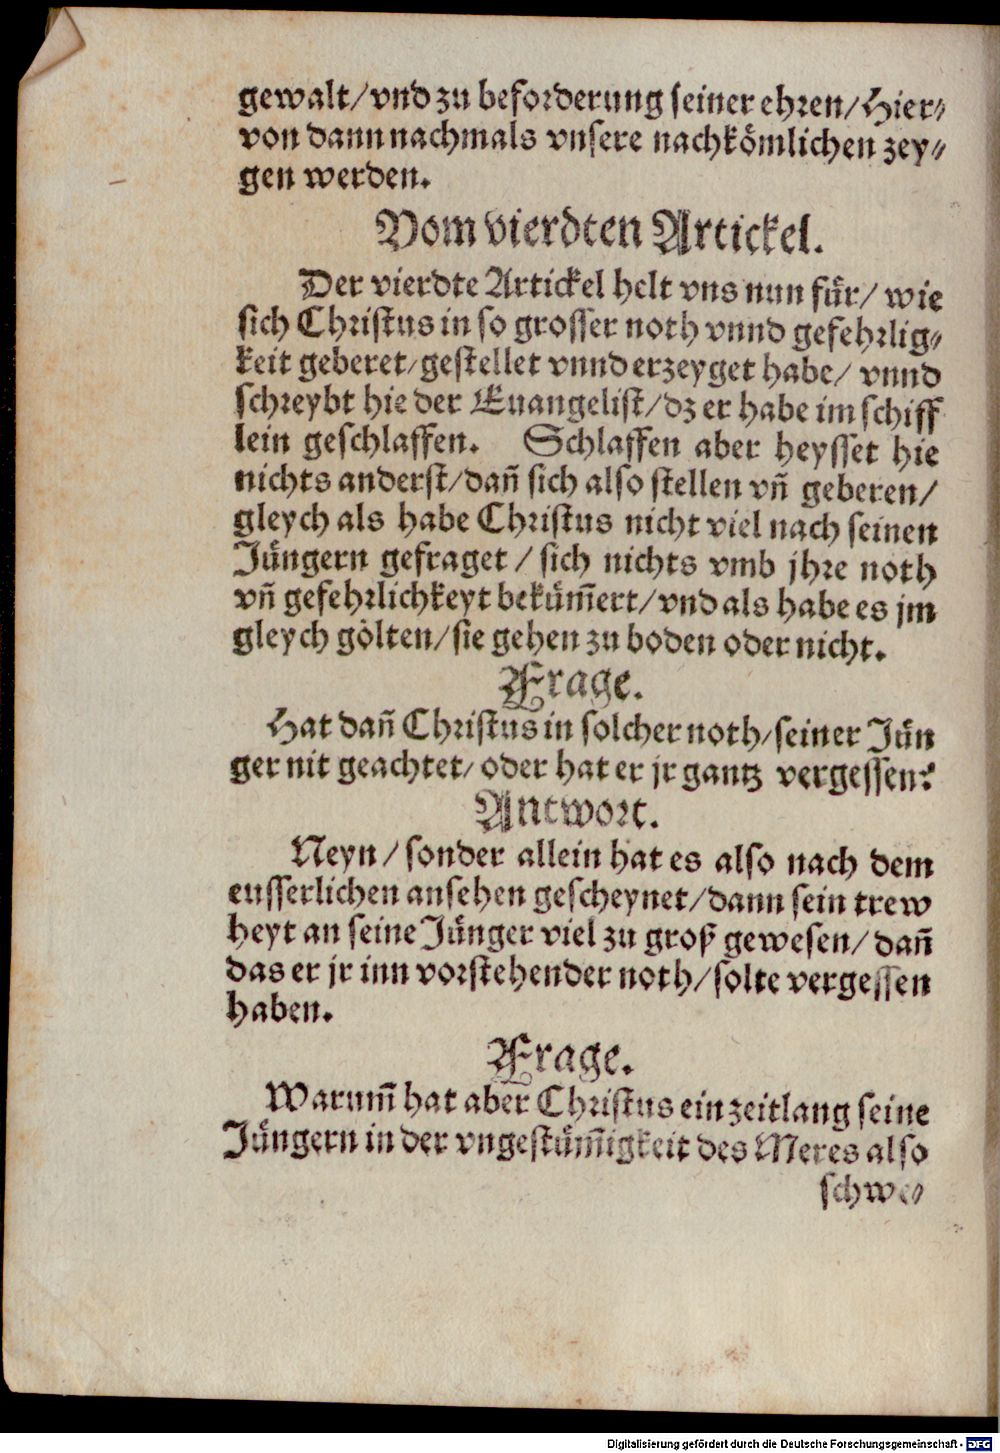 gewalt/vnd zu beforderung seiner ehren/Hier⸗
von dann nachmals vnsere nachkömlichen zey⸗
gen werden.
Vom vierdten Artickel.
Der vierdte Artickel helt vns nun für/ wie
sich Christus in so grosser noth vnnd gefehrlig⸗
keit geberet/gestellet vnnd erzeyget habe/ vnnd
schreybt hie der Euangelist/dz er habe im schiff
lein geschlaffen. Schlaffen aber heysset hie
nichts anderst/dañ sich also stellen vñ geberen/
gleych als habe Christus nicht viel nach seinen
Jüngern gefraget / sich nichts vmb jhre noth
vñ gefehrlichkeyt beküm̃ert/vnd als habe es jm
gleych gölten/sie gehen zu boden oder nicht.
Frage.
Hat dañ Christus in solcher noth/seiner Jün
ger nit geachtet/ oder hat er jr gantz vergessen?
Antwort.
Neyn/ sonder allein hat es also nach dem
eusserlichen ansehen gescheynet/dann sein trew
heyt an seine Jünger viel zu groß gewesen/ dañ
das er jr inn vorstehender noth/solte vergessen
haben.
Frage.
Warum̃ hat aber Christus ein zeitlang seine
Jüngern in der vngestüm̃igkeit des Meres also
schwe⸗
Digitalisierung gefördert durch die Deutsche Forschungsgemeinschaft - DFG